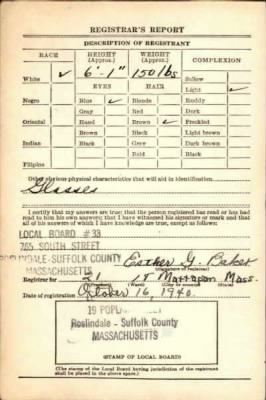 REGISTRAR'S REPORT
DESCRIPTION OF REGISTRANT
RACE HEIGHT (Approx.) WEIGHT (Approx.) COMPLEXION
6'-1" 150 lbs Sallow
White ✓ EYES HAIR Light ✓
Negro Blue ✓ Blonde Ruddy
Gray Red Dark
Oriental Hazel Brown ✓ Freckled
Brown Black Light brown
Indian Black Gray Dark brown
Bald Black
Filipino
Other obvious physical characteristics that will aid in identification
Glasses
I certify that my answers are true; that the person registered has read or has had
read to him his own answers; that I have witnessed his signature or mark and that
all of his answers of which I have knowledge are true, except as follows:
LOCAL BOARD #33
765 SOUTH STREET
ROSLINDALE-SUFFOLK COUNTY
MASSACHUSETTS
Esther G. Baker
(Signature of registrar)
Registrar for 21 Mass.
(Ward) (City or county)
Date of registration October 16, 1940.
19
Roslindale - Suffolk County
MASSACHUSETTS
(STAMP OF LOCAL BOARD)
(The stamp of the Local Board having jurisdiction of the registrant
shall be placed in the above space.)